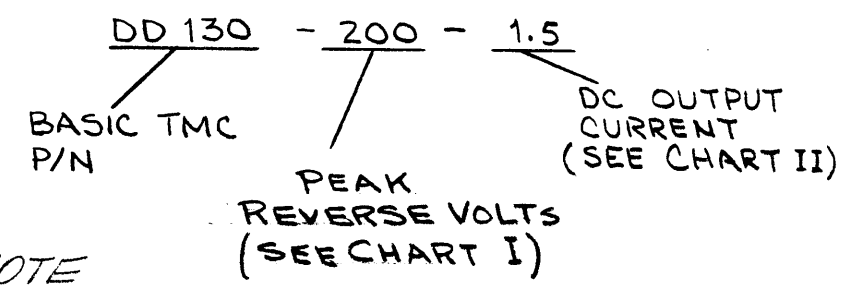 DD 130 - 200 - 1.5
BASIC TMC
P/N
PEAK
REVERSE VOLTS
(SEE CHART I)
DC OUTPUT
CURRENT
(SEE CHART II)
OTE